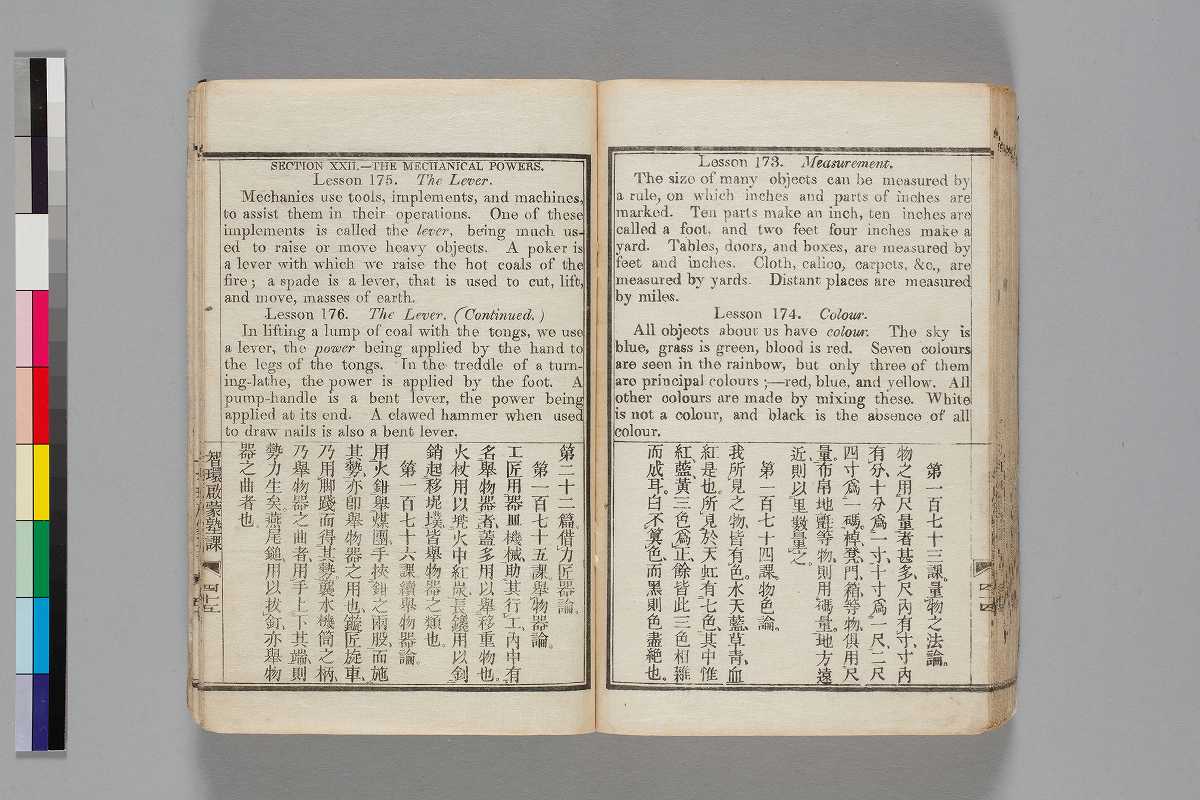 Lesson 173. Measurement.
The size of many objects can be measured by
a rule, on which inches and parts of inches are
marked. Ten parts make an inch, ten inches are
called a foot, and two feet four inches make a
yard. Tables, doors, and boxes, are measured by
feet and inches. Cloth, calico, carpets, &c., are
measured by yards. Distant places are measured
by miles.
Lesson 174. Colour.
All objects about us have colour. The sky is
blue, grass is green, blood is red. Seven colours
are seen in the rainbow, but only three of them
are principal colours ;—red, blue, and yellow. All
other colours are made by mixing these. White
is not a colour, and black is the absence of all
colour.
第一百七十三課。量物之法論。
物之用尺量者甚多、尺內有寸、寸內
有分、十分爲一寸、十寸爲一尺、二尺
四寸爲一碼、棹凳、門、箱等物、俱用尺
量。布帛地氈等物、則用碼量。地方遠
近則以里數量之。
第一百七十四課。物色論。
我所見之物、皆有色。水天藍、草青、血
紅是也。所見於天虹有七色、其中惟
紅、藍、黃三色爲正、餘皆此三色相雜
而成耳。白不算色、而黑則色盡絶也。
SECTION XXII.—THE MECHANICAL POWERS.
Lesson 175. The Lever.
Mechanics use tools, implements, and machines,
to assist them in their operations. One of these
implements is called the lever, being much us-
ed to raise or move heavy objects. A poker is
a lever with which we raise the hot coals of the
fire ; a spade is a lever, that is used to cut, lift,
and move, masses of earth.
Lesson 176. The Lever. (Continued.)
In lifting a lump of coal with the tongs, we use
a lever, the power being applied by the hand to
the legs of the tongs. In the treddle of a turn-
ing-lathe, the power is applied by the foot. A
pump-handle is a bent lever, the power being
applied at its end. A clawed hammer when used
to draw nails is also a bent lever.
第二十二篇。借力匠器論。
第一百七十五課。舉物器論。
工匠用器皿機械、助其行工、內中有
名舉物器者、蓋多用以舉移重物也。
火杖用以撬火中紅炭、長鑱用以剖
銷起移坭墣、皆舉物器之類也。
第一百七十六課。續舉物器論。
用火鉗舉煤團、手挾鉗之兩股、而施
其勢、亦卽舉物器之用也。鏇匠旋車、
乃用脚踐而得其勢。水機筒之柄、
乃舉物器之曲者、用手上下其端、則
勢力生矣。燕尾鎚、用以拔釘、亦舉物
器之曲者也。
智環啟蒙塾課
四十五